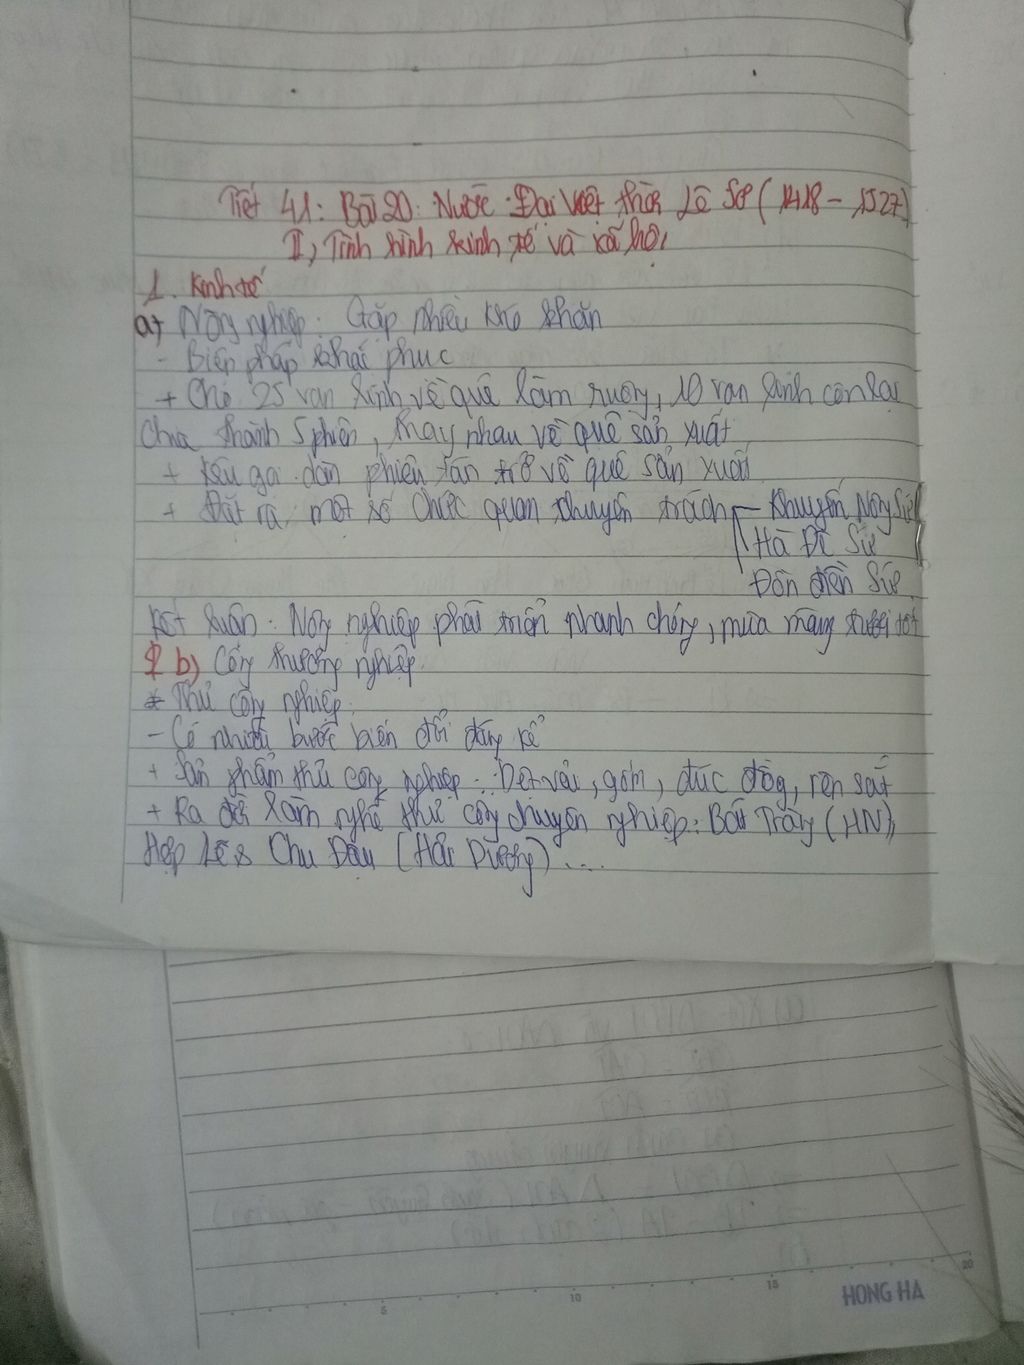 Tiết 41: Bài 20: Nước Đại Việt thời Lê Sơ (1428 - 1527)
II, Tình hình kinh tế và xã hội
1. Kinh tế
a, Nông nghiệp: Gặp nhiều khó khăn
- Biện pháp khắc phục
+ Cho 25 vạn lính về quê làm ruộng, 10 vạn lính còn lại
chia thành 5 phiên, thay nhau về quê sản xuất
+ Kêu gọi dân phiêu tán trở về quê sản xuất
+ Đặt ra một số chức quan chuyên trách - Khuyến Nông Sứ
Hà Đê Sứ
Đồn điền Sứ
Kết luận: Nông nghiệp phát triển nhanh chóng, mùa màng tươi tốt
b) Công thương nghiệp
* Thủ công nghiệp:
- Có nhiều bước biến đổi đáng kể
+ Sản phẩm thủ công nghiệp: Dệt vải, gốm, đúc đồng, rèn sắt
+ Ra đời làng nghề thủ công chuyên nghiệp: Bát Tràng (HN),
Hợp Lễ & Chu Đậu (Hải Dương) ...
5 10 15 20
HONG HA